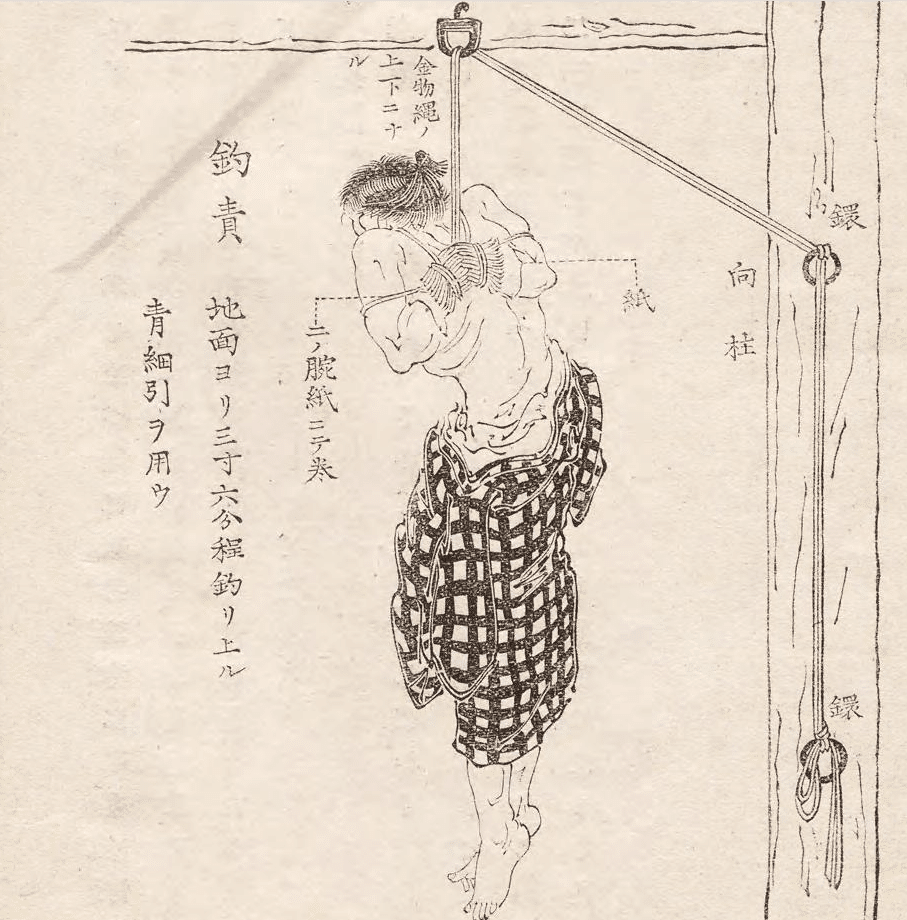 鐶
鐶
向柱
紙
金物繩ノ
上下ニナ
ル
二ノ腕紙ニテ巻
釣責
地面ヨリ三寸六分程釣リ上ル
青細引ヲ用ウ